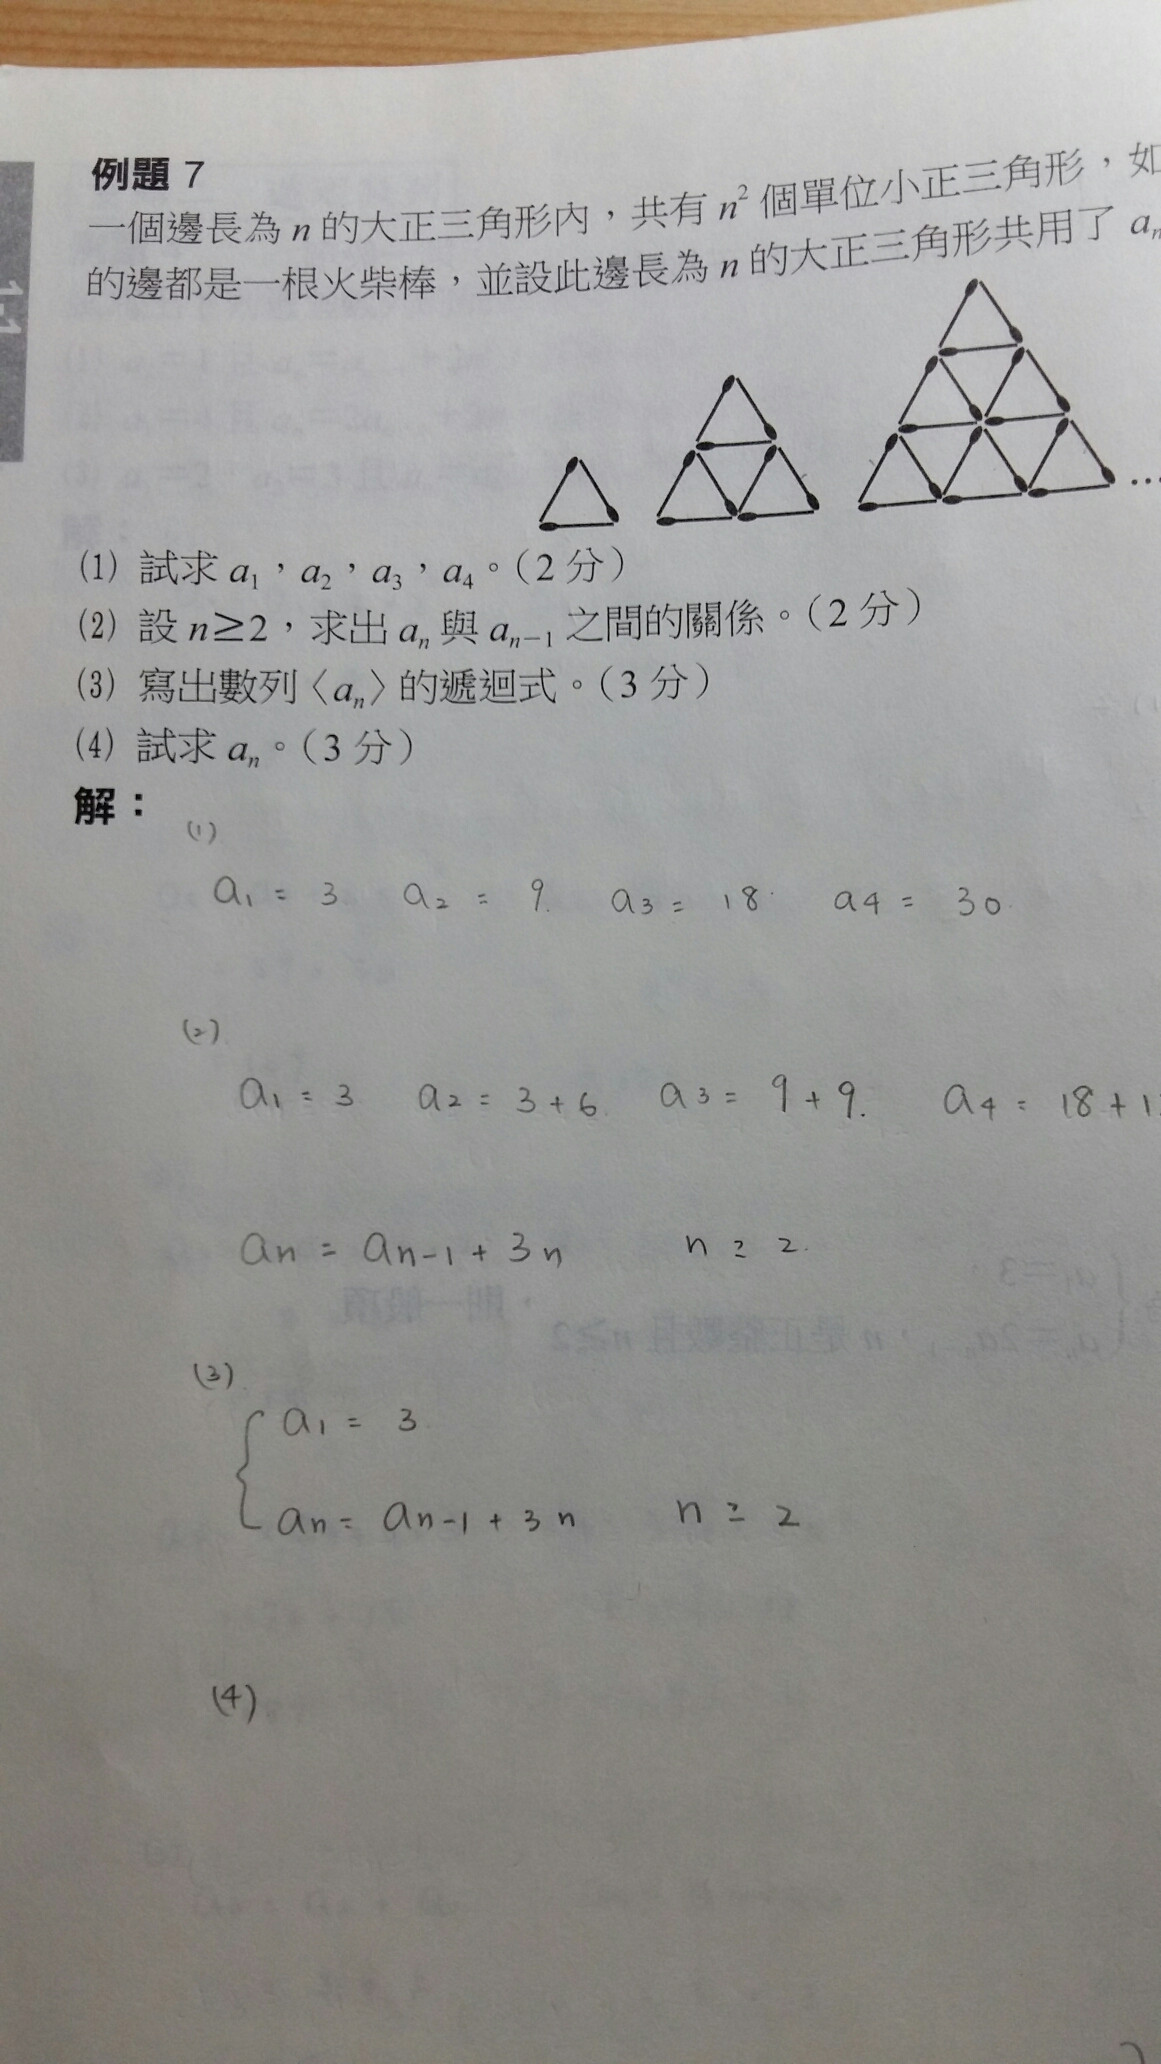 例題 7
一個邊長為 n 的大正三角形內，共有 n² 個單位小正三角形，如
的邊都是一根火柴棒，並設此邊長為 n 的大正三角形共用了 aₙ
…
(1) 試求 a₁，a₂，a₃，a₄。（2 分）
(2) 設 n≥2，求出 aₙ 與 aₙ₋₁ 之間的關係。（2 分）
(3) 寫出數列〈aₙ〉的遞迴式。（3 分）
(4) 試求 aₙ。（3 分）
解：
(1)
a₁ = 3 a₂ = 9. a₃ = 18 a₄ = 30
(2)
a₁ = 3 a₂ = 3+6 a₃ = 9+9. a₄ = 18+1
aₙ = aₙ₋₁ + 3n n ≥ 2.
(3)
a₁ = 3
aₙ = aₙ₋₁ + 3n n ≥ 2
(4)